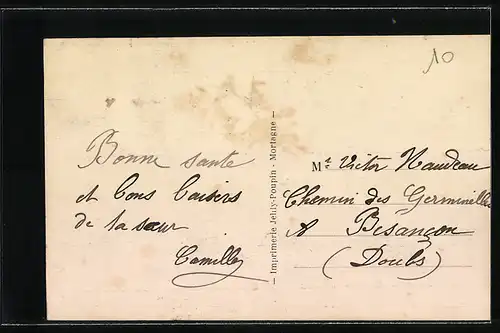 10
Bonne santé
et bons baisers
de ta sœur
Camille
— Imprimerie Jehly-Poupin - Mortagne —
Mr Victor Naudeau
Chemin des Germinelles
A Besançon
(Doubs)